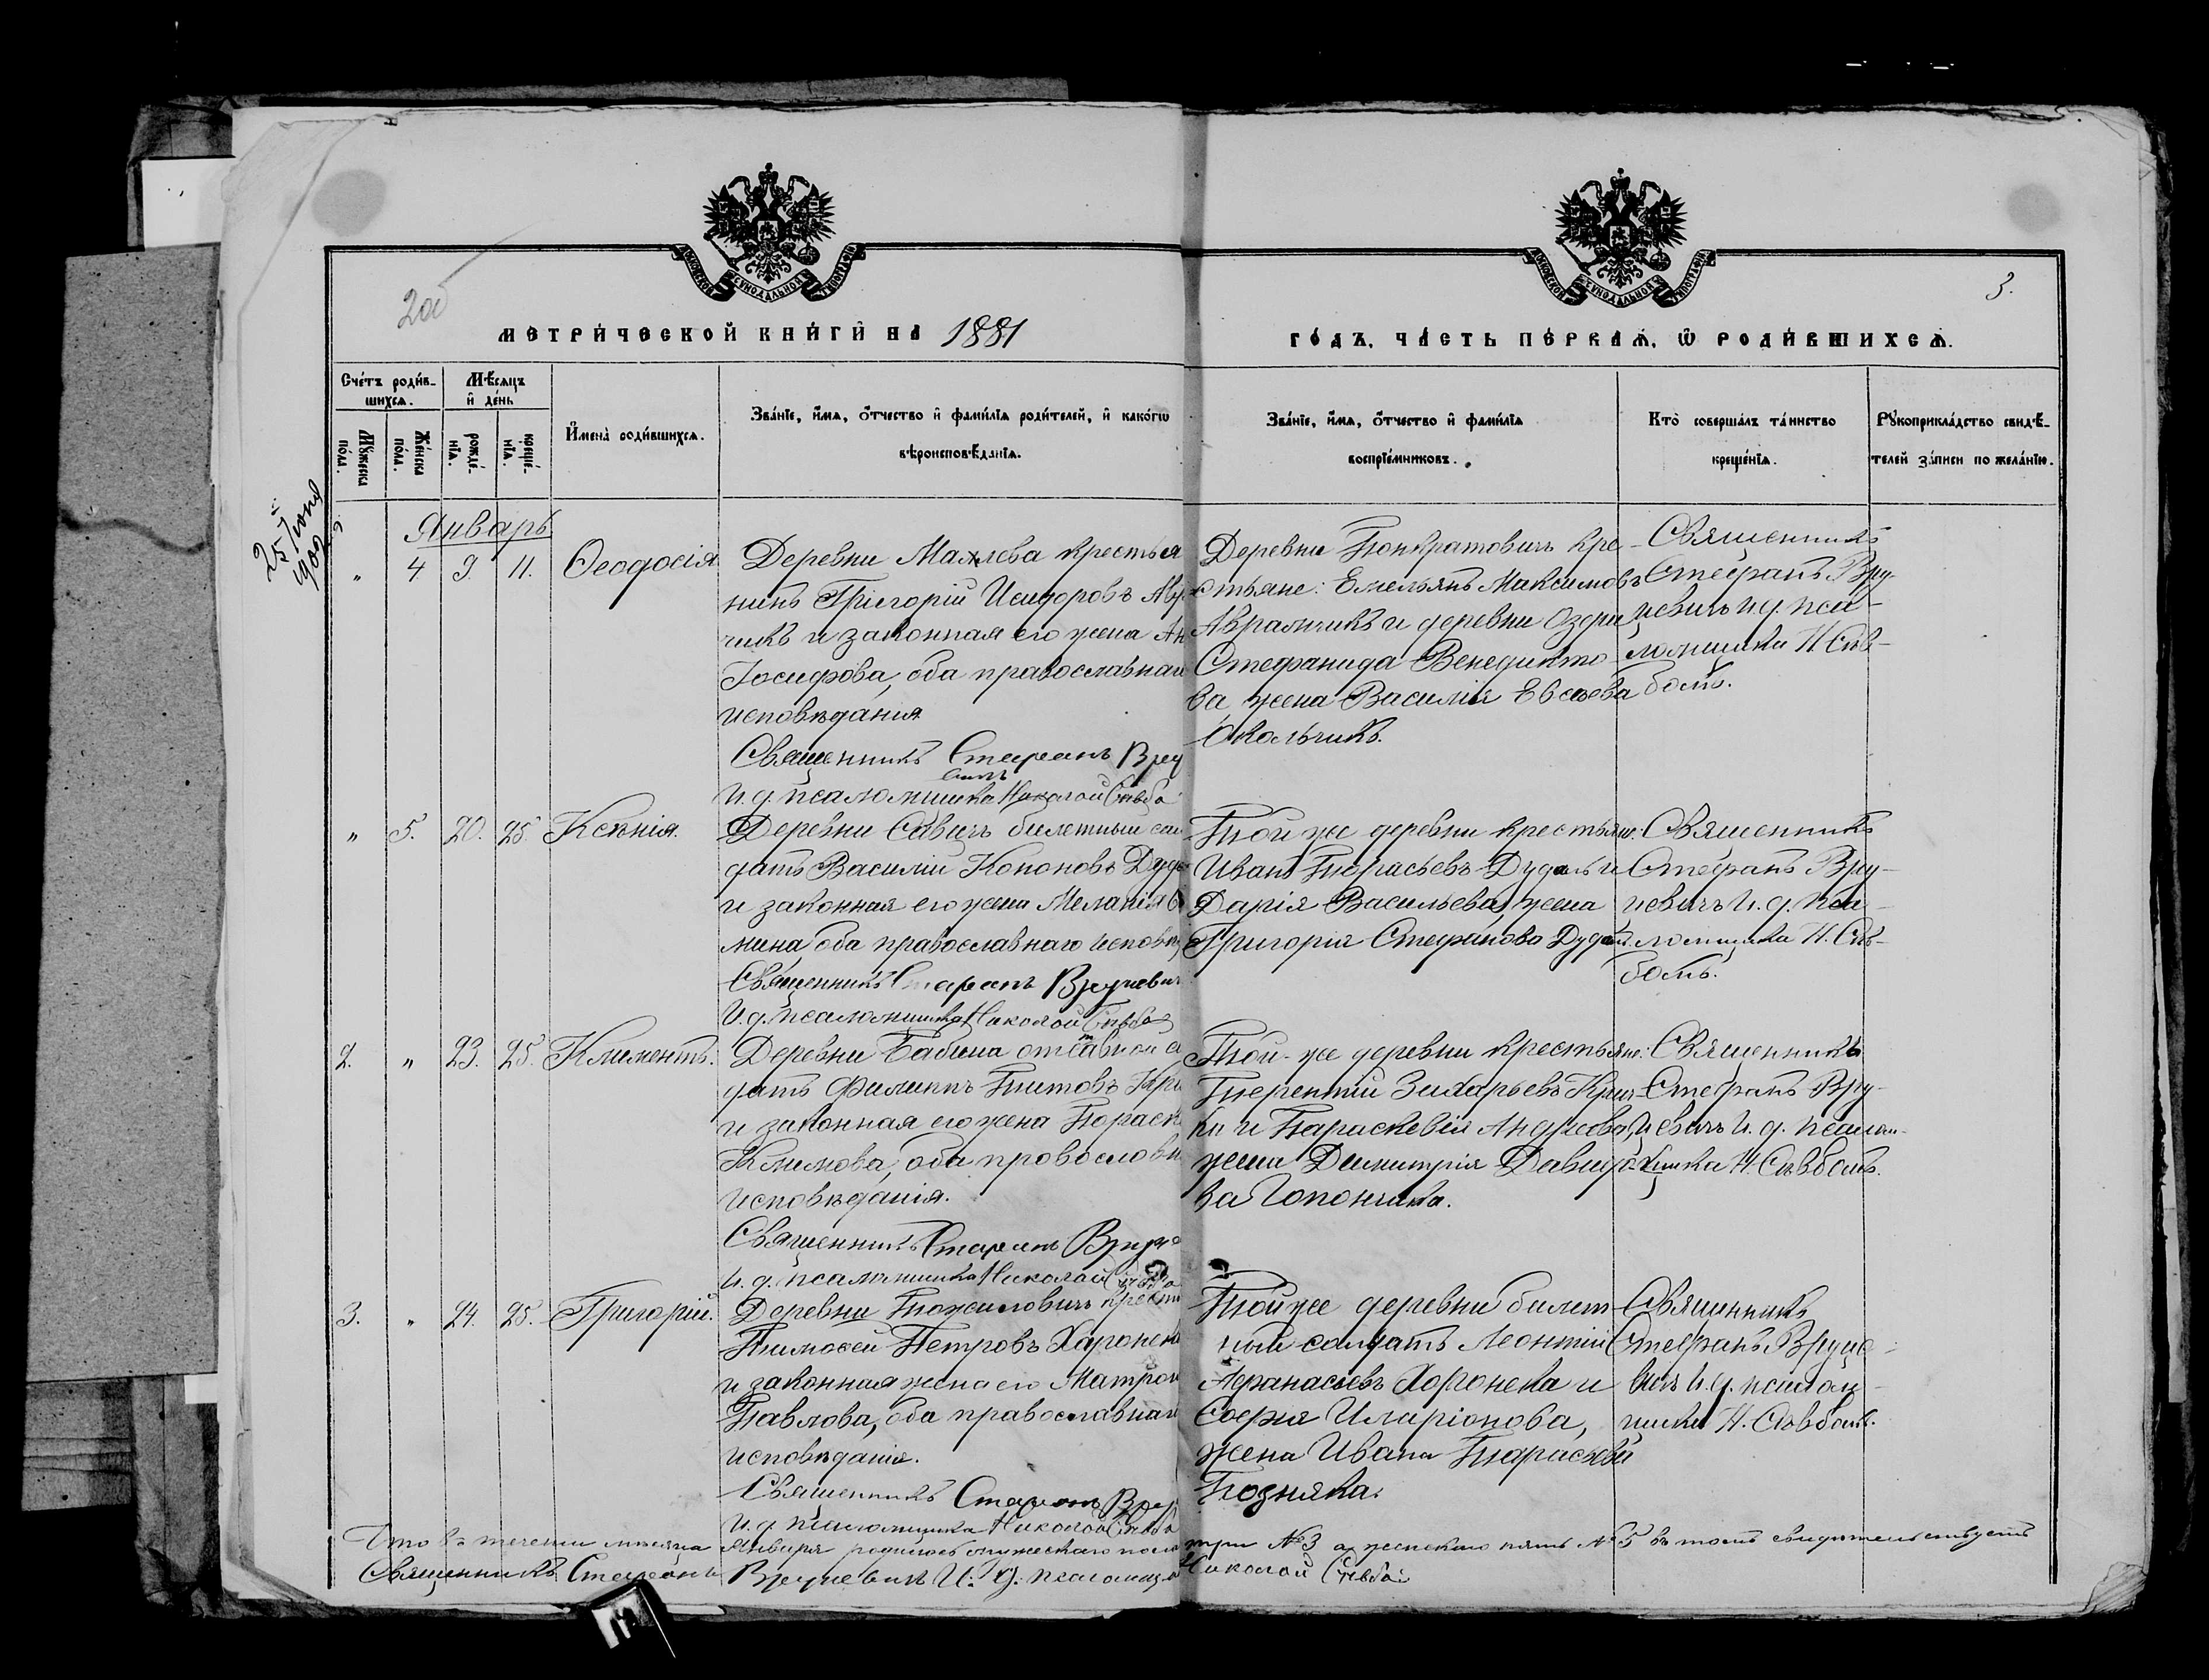 25 Іюня
1902
2об
3.
МЕТРИЧЕСКОЙ КНИГИ НА 1881
ГОДЪ, ЧАСТЬ ПЕРВАЯ, Ѡ РОДИВШИХСЯ.
Счетъ родив-
шихся.
Мѣсяцъ
и день
Мужеска
пола.
Женска
пола.
рожде-
нія.
креще-
нія.
Имена родившихся.
Званіе, имя, отчество и фамилія родителей, и какогѡ
вѣроисповѣданія.
Званіе, имя, отчество и фамилія
воспріемниковъ.
Кто совершалъ таинство
крещенія.
Рукоприкладство свидѣ-
телей записи по желанію.
Январь
" 4 9. 11. Ѳеодосія
Деревни Махлева крестья
нинъ Григорій Исидоровъ Авр
чикъ и законная его жена Ан
Іосифова, оба православнаг
исповѣданія
Священникъ Стефанъ Вру
И. д. псаломщика Николай Съвба
Деревни Понкратовичъ кре-
стьяне: Емельянъ Максимовъ
Абрамчикъ и деревни Озери
Стефанида Венедикто-
ва жена Василія Евсѣева
Окольчикъ.
Священникъ
Стефанъ Вру-
цевичъ и. д. пса-
ломщика Н. Съв-
бомъ.
" 5. 20. 25. Ксенія.
Деревни Савичъ билетный сол
датъ Василій Кононовъ Дуда
и законная его жена Меланія
мина, оба православнаго исповѣ
Священникъ Стефанъ Вруцевич
И. д. псаломщика Николай Съвба
Той же деревни крестьяне:
Иванъ Тарасьевъ Дудаль и
Дарія Васильева, жена
Григорія Стефанова Дудаля.
Священникъ
Стефанъ Вру-
цевичъ И. д. пса-
ломщика Н. Съв-
бомъ.
2. " 23. 25. Климентъ.
Деревни Бабина отставной со
датъ Филиппъ Титовъ Кри
и законная его жена Параск
Климова, оба православн
исповѣданія.
Священникъ Стефанъ Вруце
И. д. псаломщика Николай Съвба
Той-же деревни крестьяне:
Терентій Захарьевъ Крив-
ки и Параскевія Андреева,
жена Димитрія Давидо-
ва Гопончика.
Священникъ
Стефанъ Вру-
цевичъ И. д. псалом-
щика Н. Съвбомъ.
3. " 24. 25. Григорій.
Деревни Пожиловичъ крестья
Тимоѳей Петровъ Харонека
и законная жена его Матрон
Павлова, оба православнаг
исповѣданія.
Священникъ Стефанъ Вруц
И. д. псаломщика Николай Съвба
Той же деревни билет-
ный солдатъ Леонтій
Аѳанасьевъ Харонека и
Софія Иларіонова,
жена Ивана Тарасьева
Позняка.
Священникъ
Стефанъ Вруце-
вичъ И. д. псалом-
щика Н. Съвбомъ.
Что въ теченіи мѣсяца Января родилось мужескаго пола три №3 а женскаго пять №5 въ томъ свидѣтельствуетъ
Священникъ Стефанъ Вруцевичъ И. д. псаломщ Николай Съвба